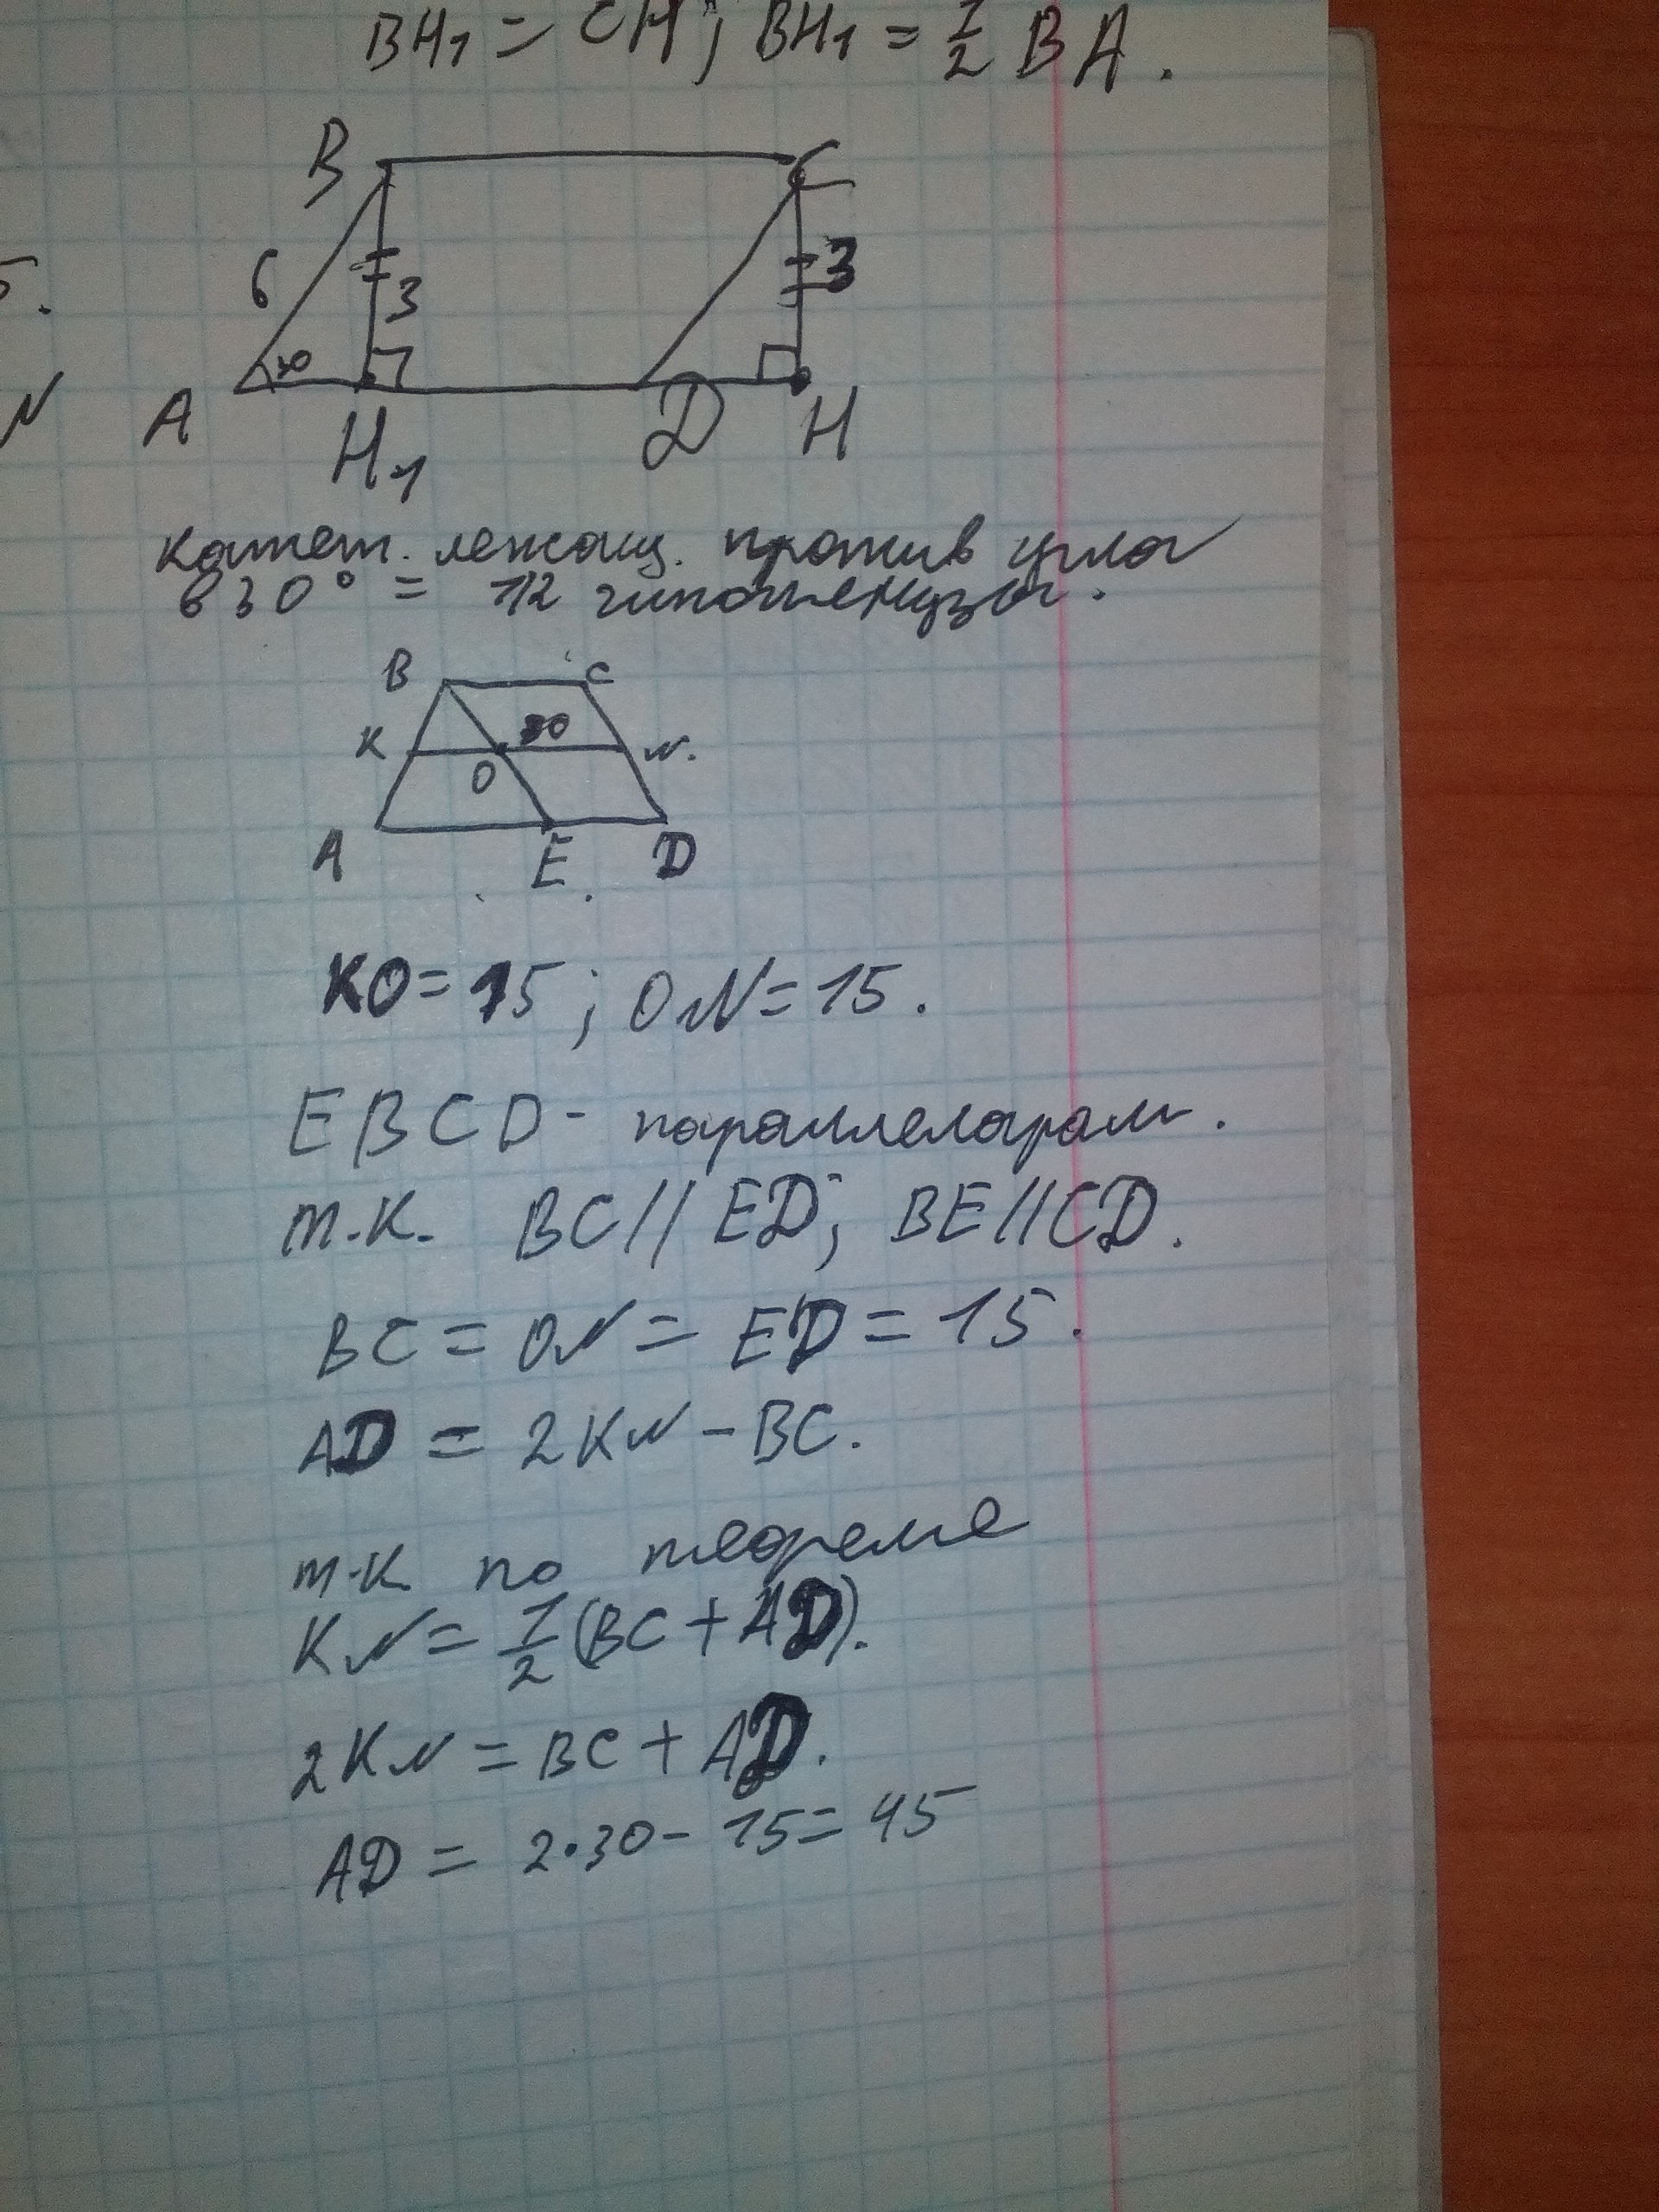 BH₁ = CH; BH₁ = 1/2 BA.
B C
5.
6 3 3
30
N A H₁ D H
катет. лежащ. против угла
в 30° = 1/2 гипотенузы.
B C
K 30 N.
O
A E D
KO = 15; ON = 15.
EBCD - параллелограм.
т.к. BC // ED; BE // CD.
BC = ON = ED = 15.
AD = 2KN - BC.
т.к. по теореме
KN = 1/2 (BC + AD).
2KN = BC + AD.
AD = 2·30 - 15 = 45